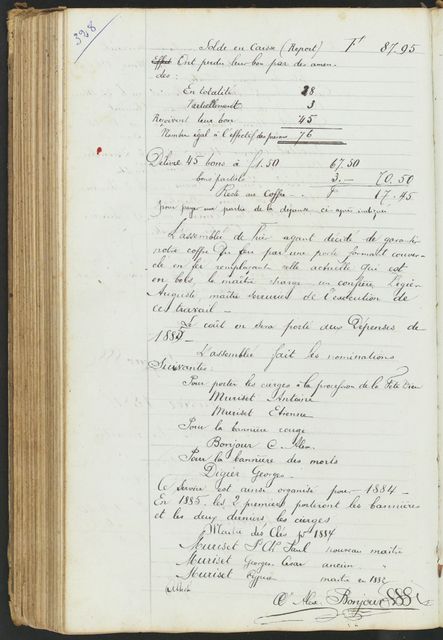 328
Solde en Caisse (Report) Fr 87.95
Ont perdu leur bon par des amen-
des :
En totalité 28
Partiellement 3
Reçoivent leur bon 45
Nombre égal à l'effectif des 76
Délivré 45 bons à f 1.50 67.50
bons partiels 3.- 70.50
Reste au Coffre F 17.45
pour payer une partie de la dépense ci-après indiquée
L'assemblée de hier ayant décidé de garantir
notre coffre du feu par une porte formant couver-
cle en fer remplaçant celle actuelle qui est
en bois, le maître charge un confrère Digier
Auguste maître serrurier de l'exécution de
ce travail -
Le coût en sera porté aux Dépenses de
1884 -
L'assemblée fait les nominations
Suivantes :
Pour porter les cierges à la procession de la Fête Dieu
Muriset Antoine
Muriset Etienne
Pour la bannière rouge
Bonjour C. Alex.
Pour la bannière des morts
Digier Georges
Ce service est ainsi organisé pour 1884 -
En 1885 les 2 premiers porteront les bannières
et les deux derniers les cierges
Maître des Clés pr 1884
Muriset Paul nouveau maître
Muriset Georges César ancien "
Muriset maître en 1882
Cs Alex Bonjour